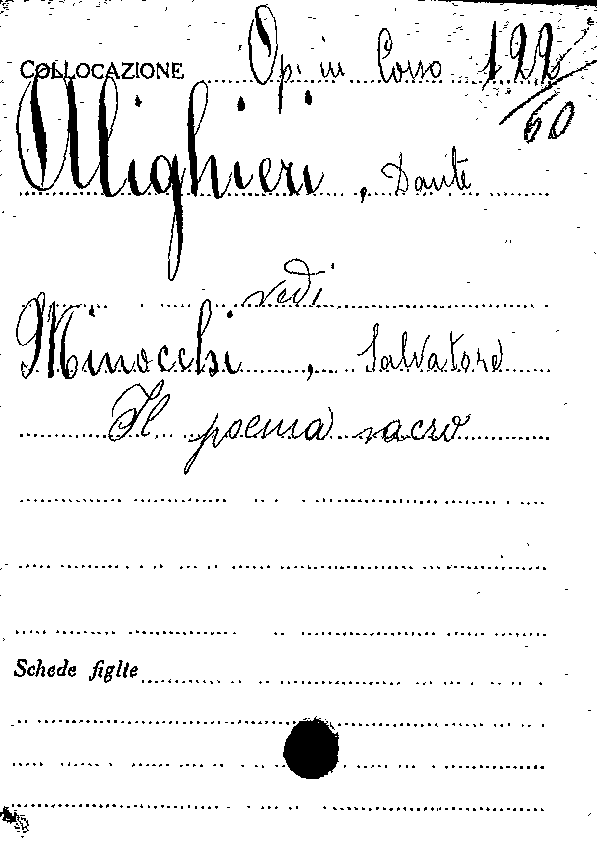 COLLOCAZIONE Op. in Corso 122/60
Alighieri, Dante
vedi
Minocchi, Salvatore
Il poema sacro
Schede figlie